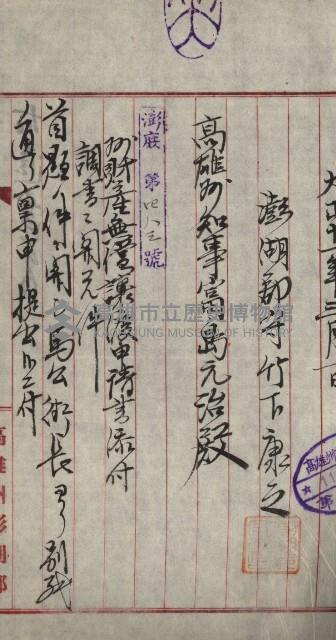 澎湖郡守竹下康之
高雄州知事富島元治殿
澎庶第四八三號
州財產無償讓渡申請書添付
調書ニ關スル件
首題ノ件ニ關シ馬公街長ヨリ別紙
ノ通リ稟申提出ニ付
高雄州澎湖郡
高雄市立歷史博物館
KAOHSIUNG MUSEUM OF HISTORY